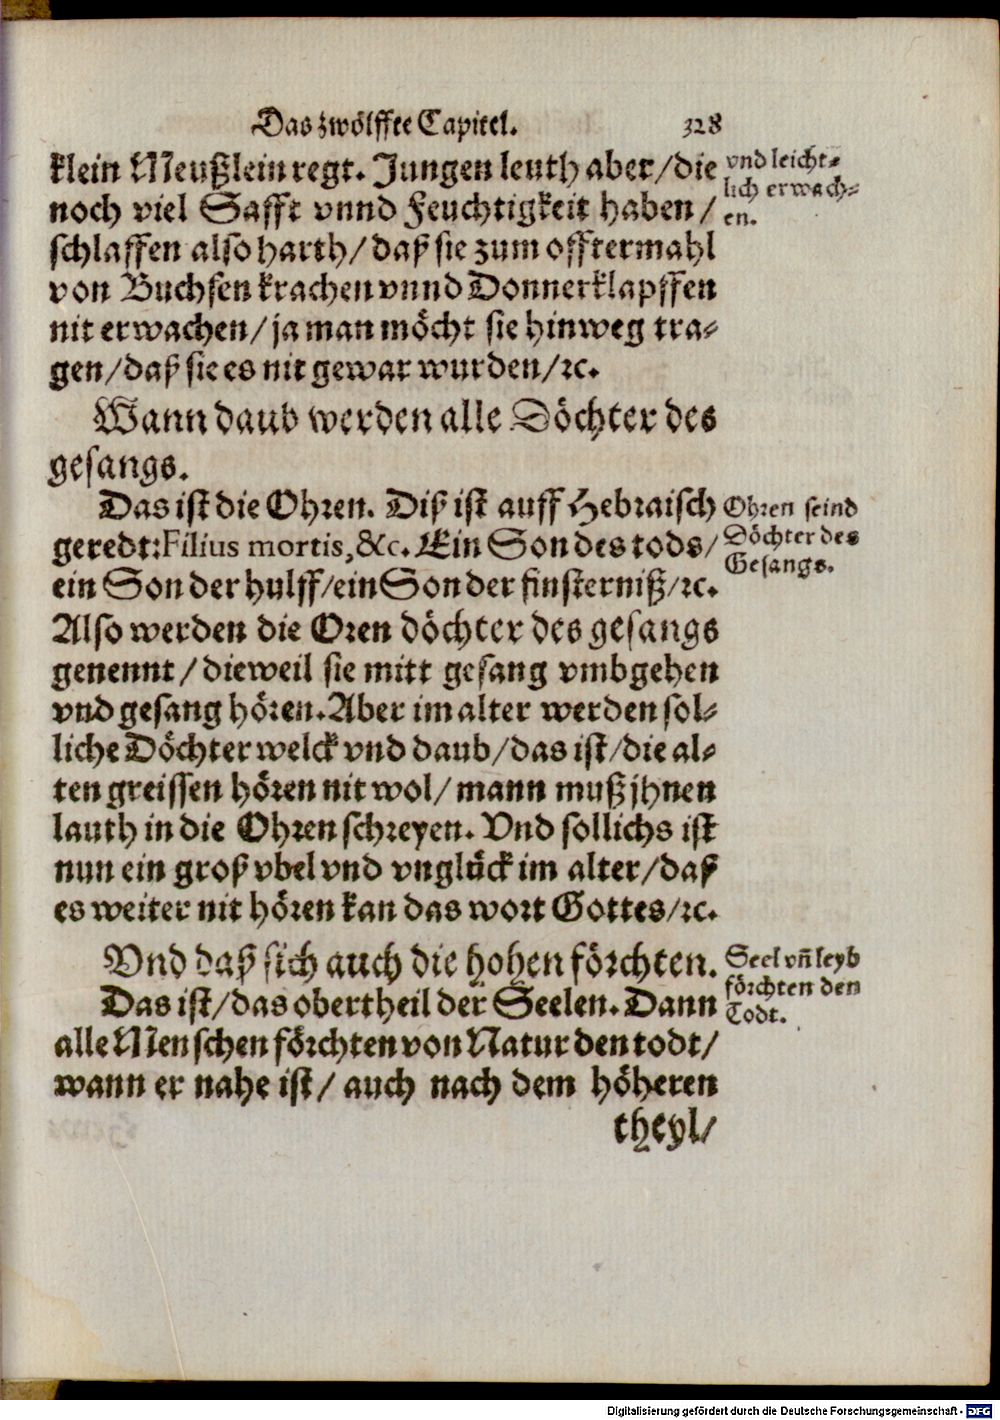 Das zwölffte Capitel. 328
klein Meußlein regt. Jungen leuth aber/die
noch viel Safft vnnd Feuchtigkeit haben/
schlaffen also harth/daß sie zum offtermahl
von Buchsen krachen vnnd Donnerklapffen
nit erwachen/ja man möcht sie hinweg tra-
gen/daß sie es nit gewar wurden/ꝛc.
vnd leicht-
lich erwach-
en.
Wann daub werden alle Döchter des
gesangs.
Das ist die Ohren. Diß ist auff Hebraisch
geredt: Filius mortis, &c. Ein Son des tods/
ein Son der hulff/ein Son der finsterniß/ꝛc.
Also werden die Oren döchter des gesangs
genennt/dieweil sie mitt gesang vmbgehen
vnd gesang hören. Aber im alter werden sol-
liche Döchter welck vnd daub/das ist/die al-
ten greissen hören nit wol/mann muß jhnen
lauth in die Ohren schreyen. Vnd sollichs ist
nun ein groß vbel vnd vnglück im alter/daß
es weiter nit hören kan das wort Gottes/ꝛc.
Ohren seind
Döchter des
Gesangs.
Vnd daß sich auch die hohen förchten.
Das ist/das obertheil der Seelen. Dann
alle Menschen förchten von Natur den todt/
wann er nahe ist/auch nach dem höheren
theyl/
Seel vñ leyb
förchten den
Todt.
Digitalisierung gefördert durch die Deutsche Forschungsgemeinschaft - DFG